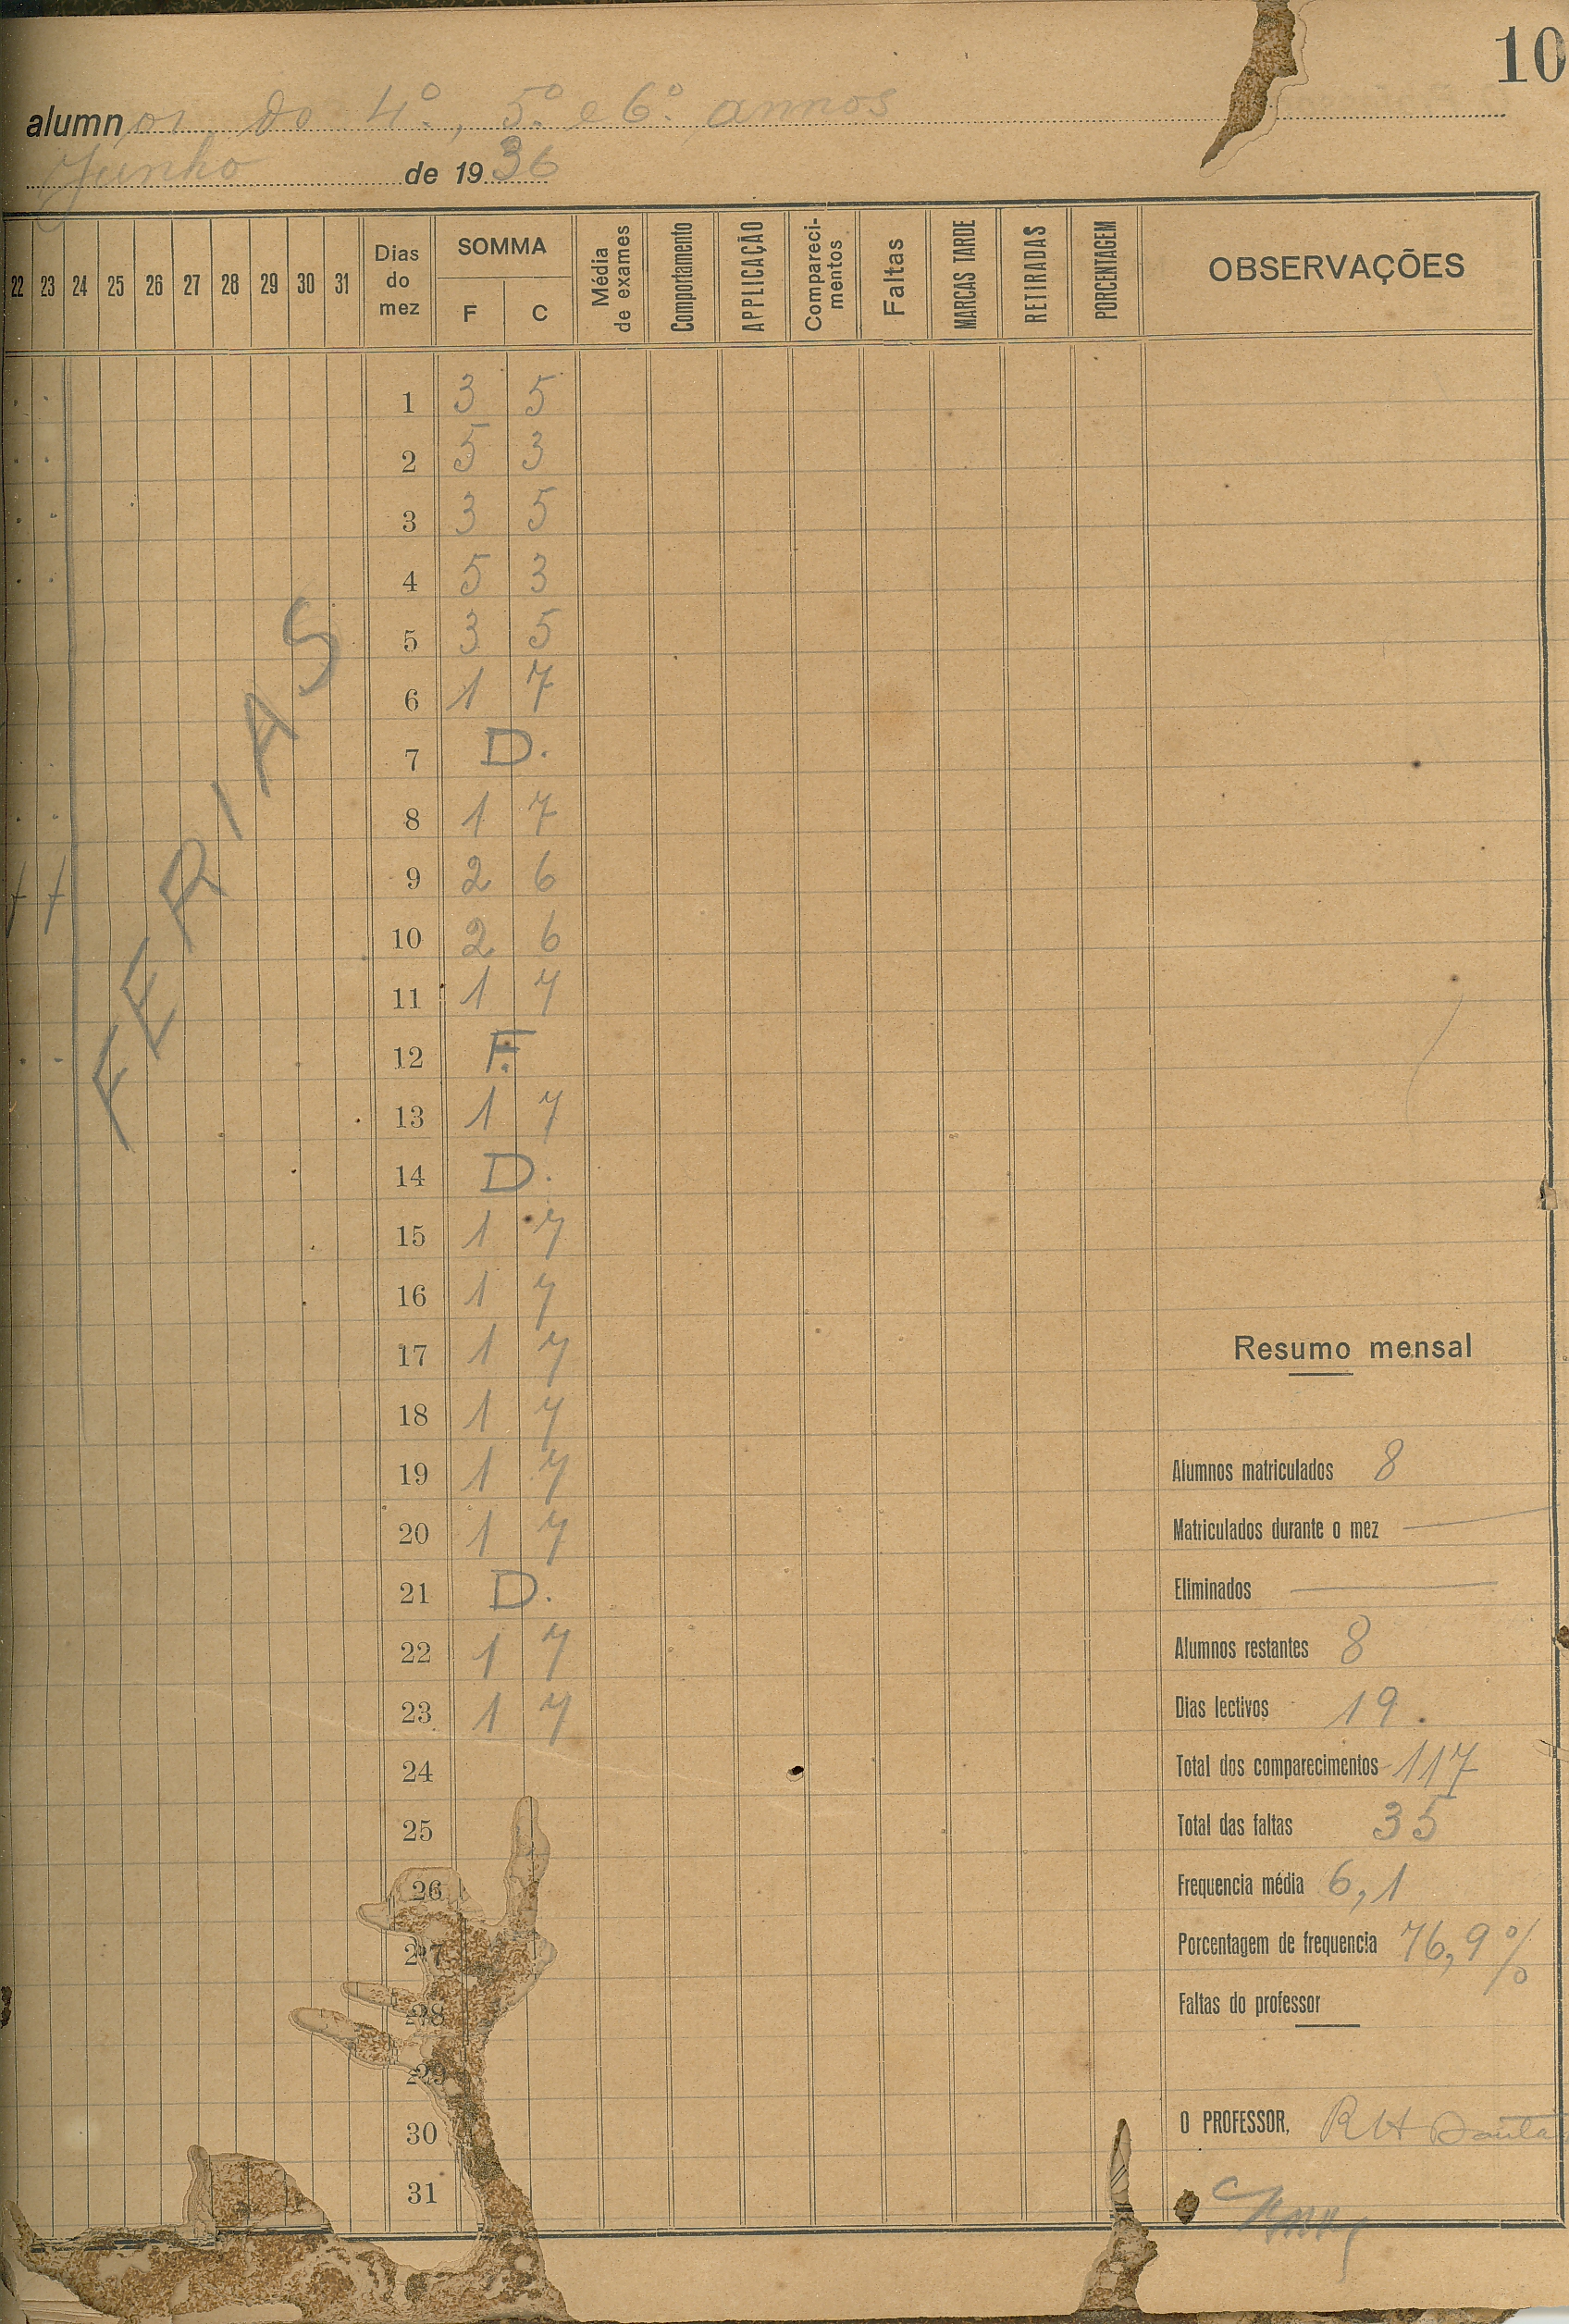 10
alumnos do 4º, 5º e 6º annos
Junho de 1936
22 23 24 25 26 27 28 29 30 31 Dias do mez SOMMA F C Média de exames Comportamento APPLICAÇÃO Compareci-mentos Faltas MARCAS TARDE RETIRADAS PORCENTAGEM OBSERVAÇÕES
1 3 5
2 5 3
3 3 5
4 5 3
5 3 5
6 1 7
7 D.
8 1 7
9 2 6
10 2 6
11 1 7
12 F.
13 1 7
14 D.
15 1 7
16 1 7
17 1 7
18 1 7
19 1 7
20 1 7
21 D.
22 1 7
23 1 7
24
25
26
27
28
29
30
31
FERIAS
Resumo mensal
Alumnos matriculados 8
Matriculados durante o mez —
Eliminados —
Alumnos restantes 8
Dias lectivos 19.
Total dos comparecimentos 117
Total das faltas 35
Frequencia média 6,1
Porcentagem de frequencia 76,9%
Faltas do professor
O PROFESSOR, R H